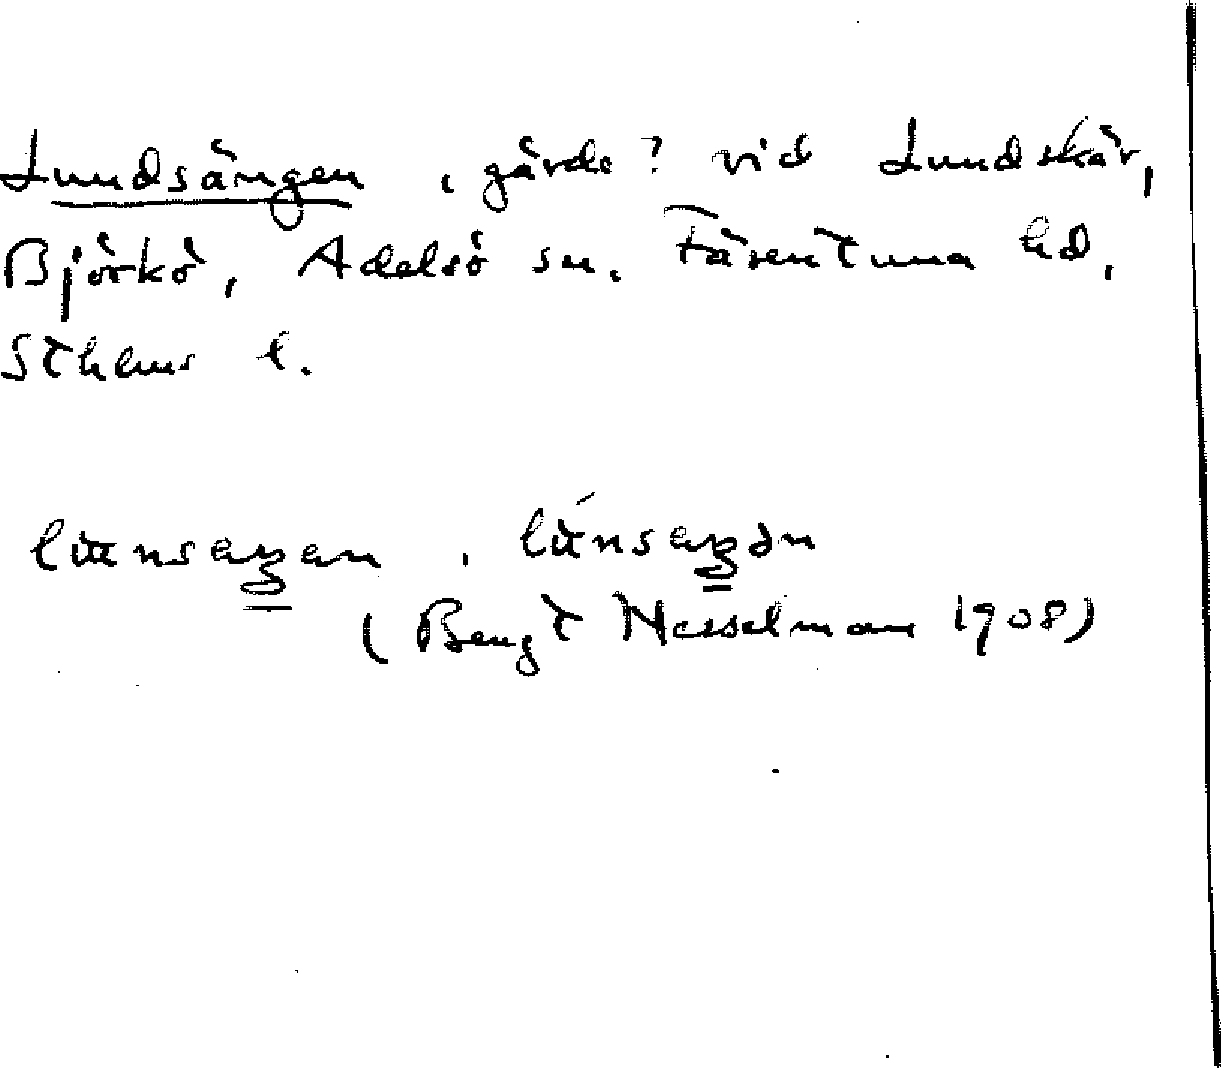 Lundsängen, gärde? vid Lundskär,
Björkö, Adelsö sn. Färentuna hd,
Sthlms l.
(Bengt Hesselman 1908)